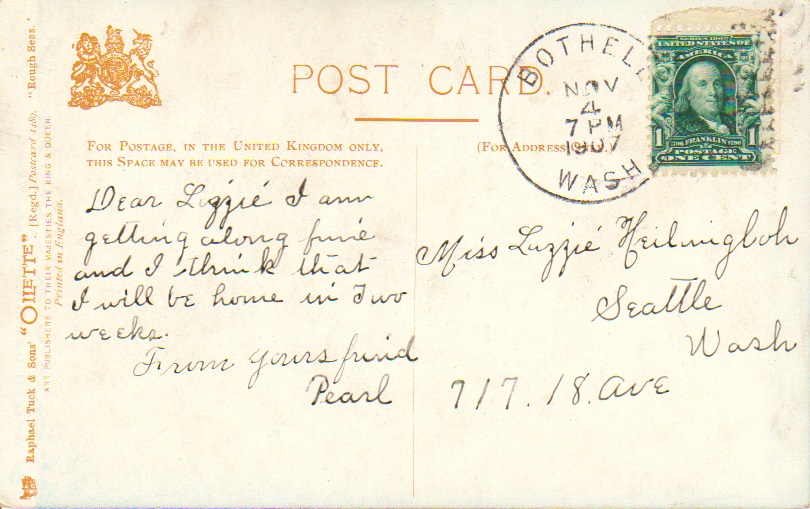 POST CARD.
FOR POSTAGE, IN THE UNITED KINGDOM ONLY,
THIS SPACE MAY BE USED FOR CORRESPONDENCE.
(FOR ADDRESS ONLY.)
BOTHELL
NOV
4
7 PM
1907
WASH
SERIES 1902
UNITED STATES OF
AMERICA
1 1
1706 FRANKLIN 1790
POSTAGE
ONE CENT
Dear Lizzie I am
getting along fine
and I think that
I will be home in Two
weeks.
From yours frind
Pearl
Miss Lizzie
Seattle
Wash
717. 18. Ave
Raphael Tuck & Sons' "OILETTE" [Regd.] Postcard 1180. "Rough Seas."
ART PUBLISHERS TO THEIR MAJESTIES THE KING & QUEEN.
Printed in England.